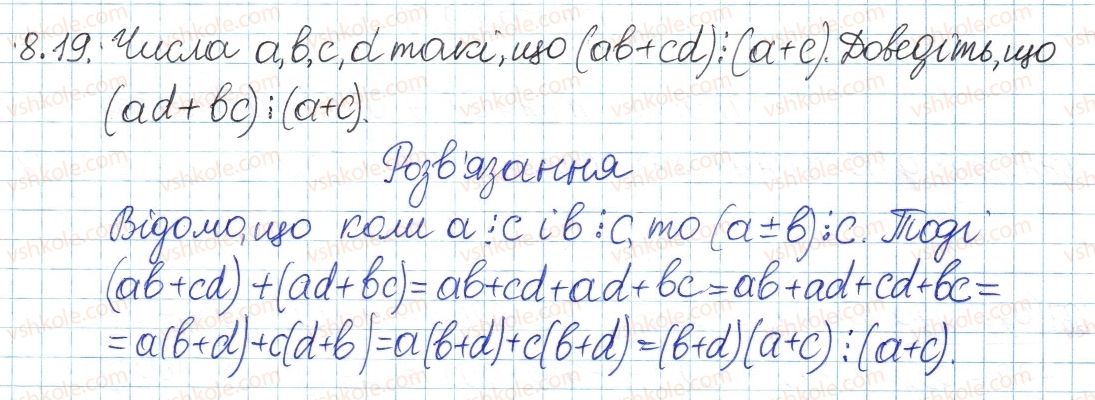 8.19. Числа a, b, c, d такі, що (ab+cd)⋮(a+c). Доведіть, що
(ad+bc)⋮(a+c).
Розв'язання
Відомо, що коли a⋮c і b⋮c, то (a±b)⋮c. Тоді
(ab+cd)+(ad+bc)=ab+cd+ad+bc=ab+ad+cd+bc=
=a(b+d)+c(d+b)=a(b+d)+c(b+d)=(b+d)(a+c)⋮(a+c).